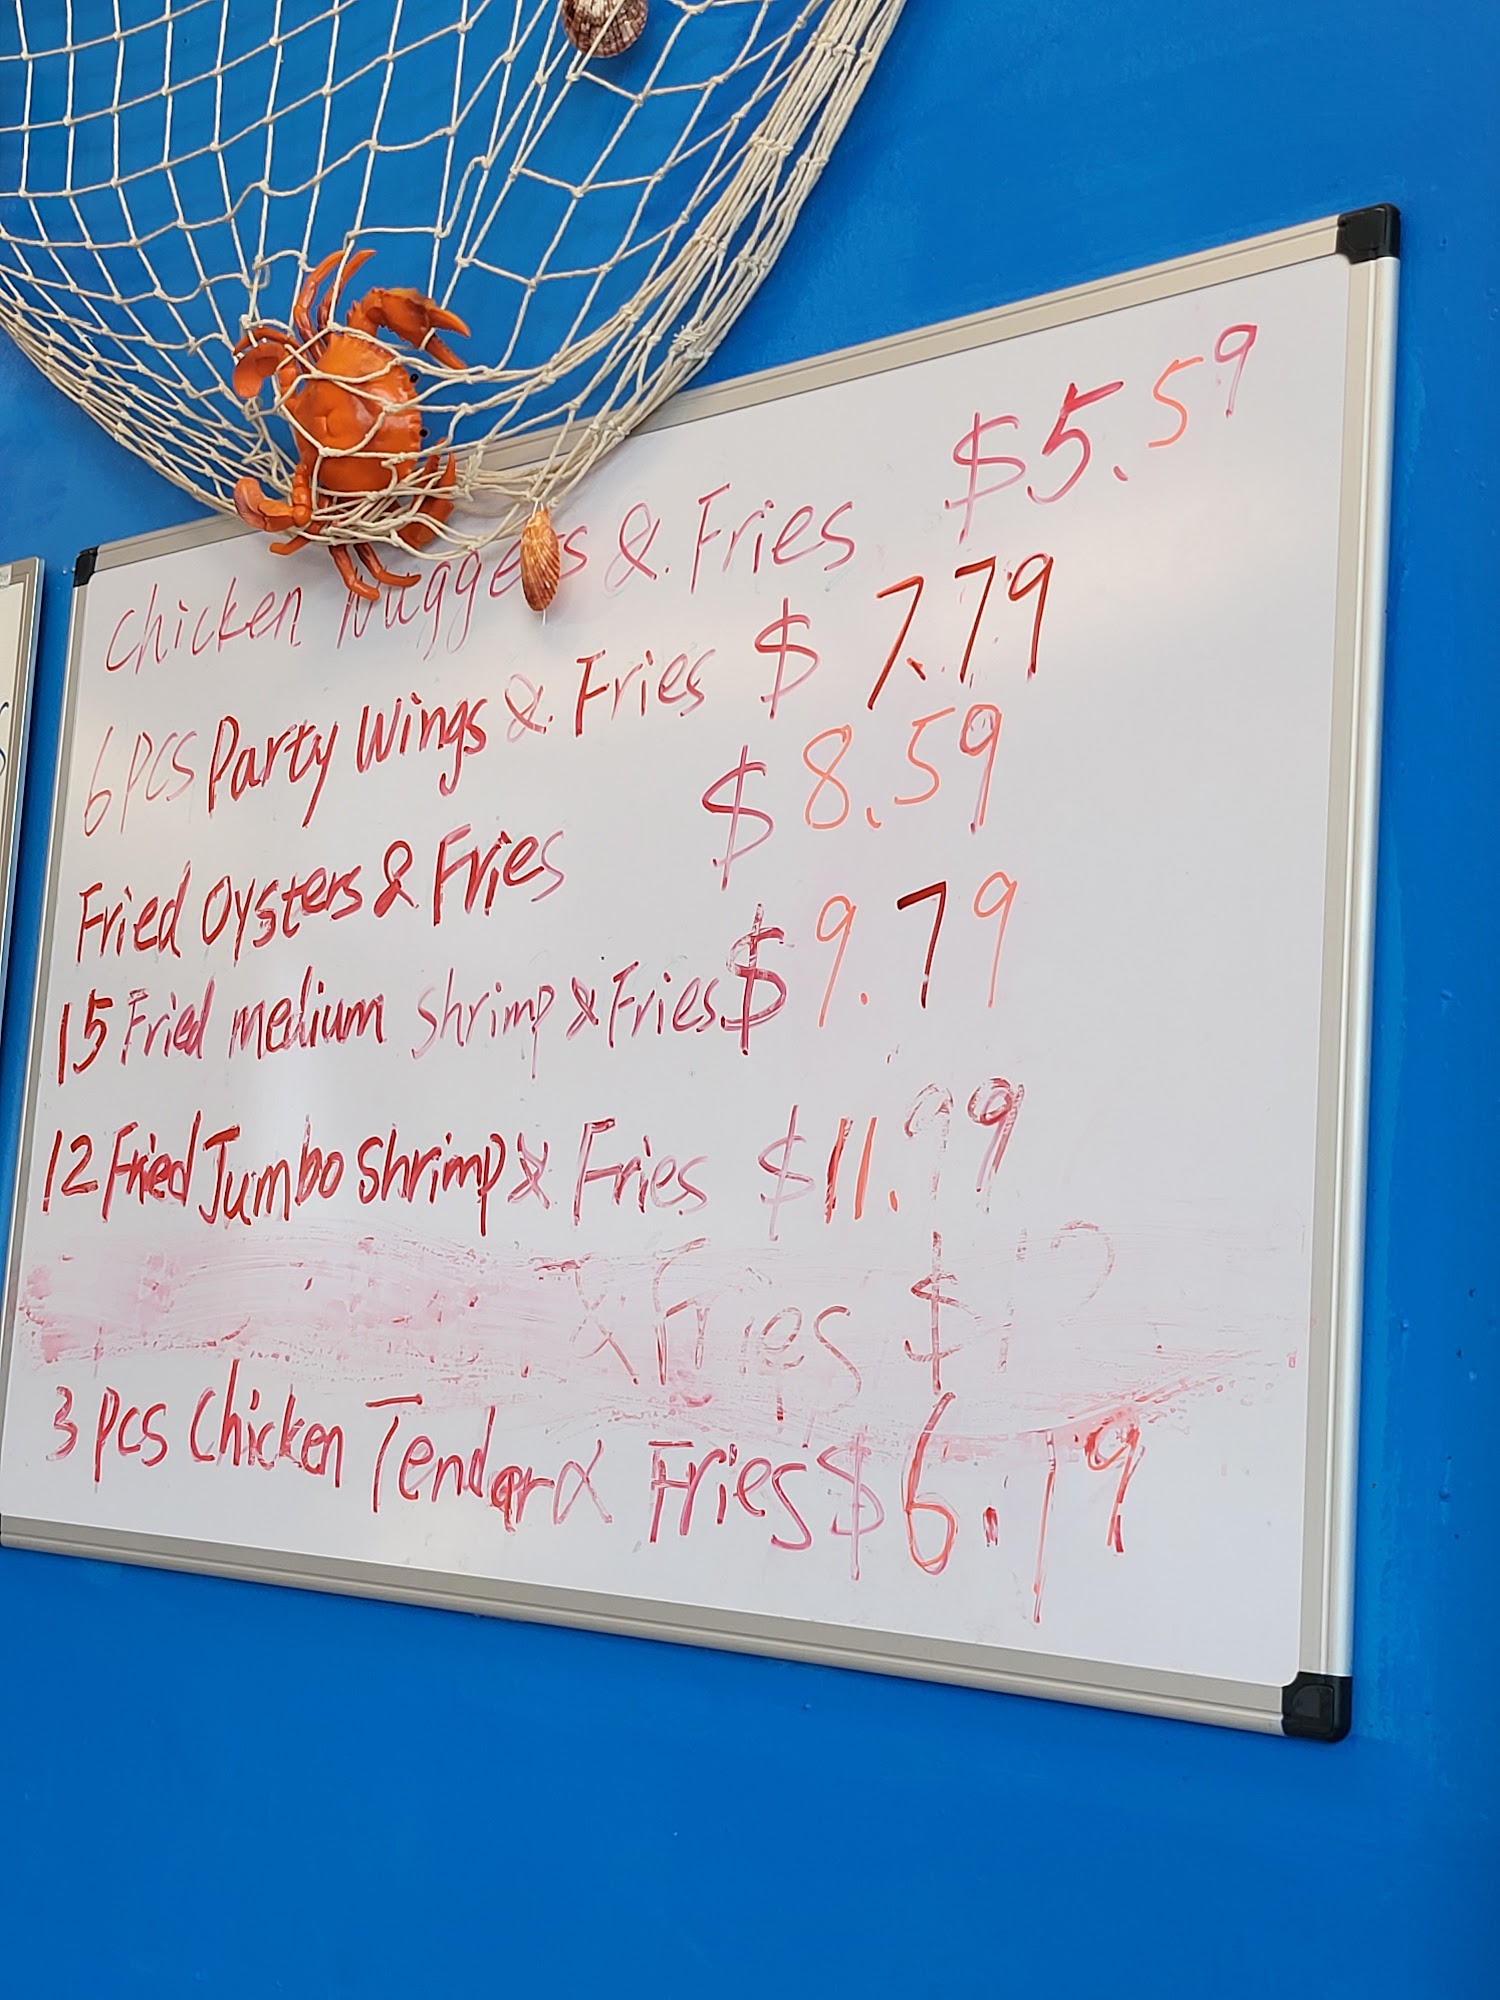 Chicken Nuggets & Fries $5.59
6 pcs Party Wings & Fries $7.79
Fried Oysters & Fries $8.59
15 Fried medium Shrimp & Fries $9.79
12 Fried Jumbo Shrimp & Fries $11.99
& Fries $12
3 pcs Chicken Tendar & Fries $6.79